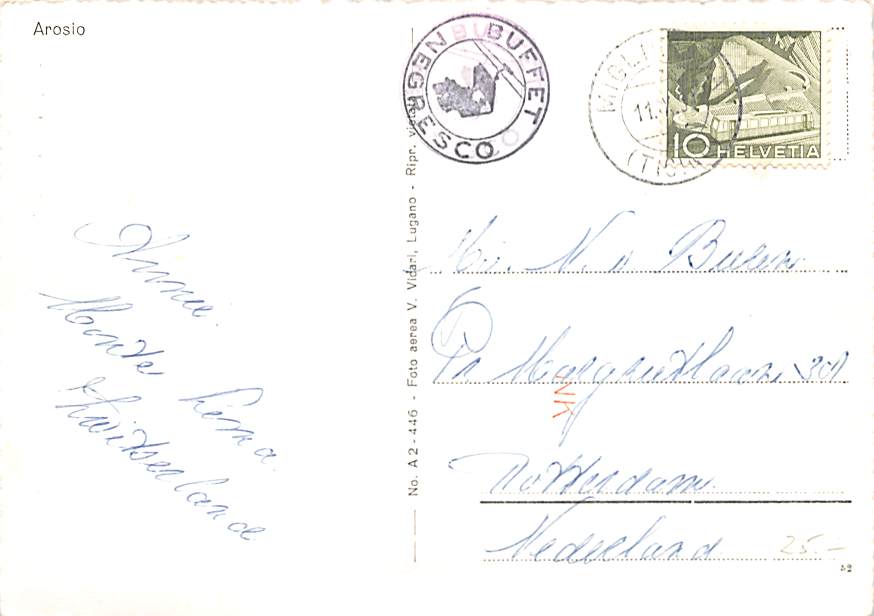 Arosio
BUFFET
NEGRESCO
MIGLI
11.
(TICI
10 HELVETIA
No. A2-446 - Foto aerea V. Vidari, Lugano - Ripr. vietat
Annie
Monte Lema
Zwitserland
N. v Buuren
Pr Margrietlaan 301
Rotterdam
Nederland
25.-